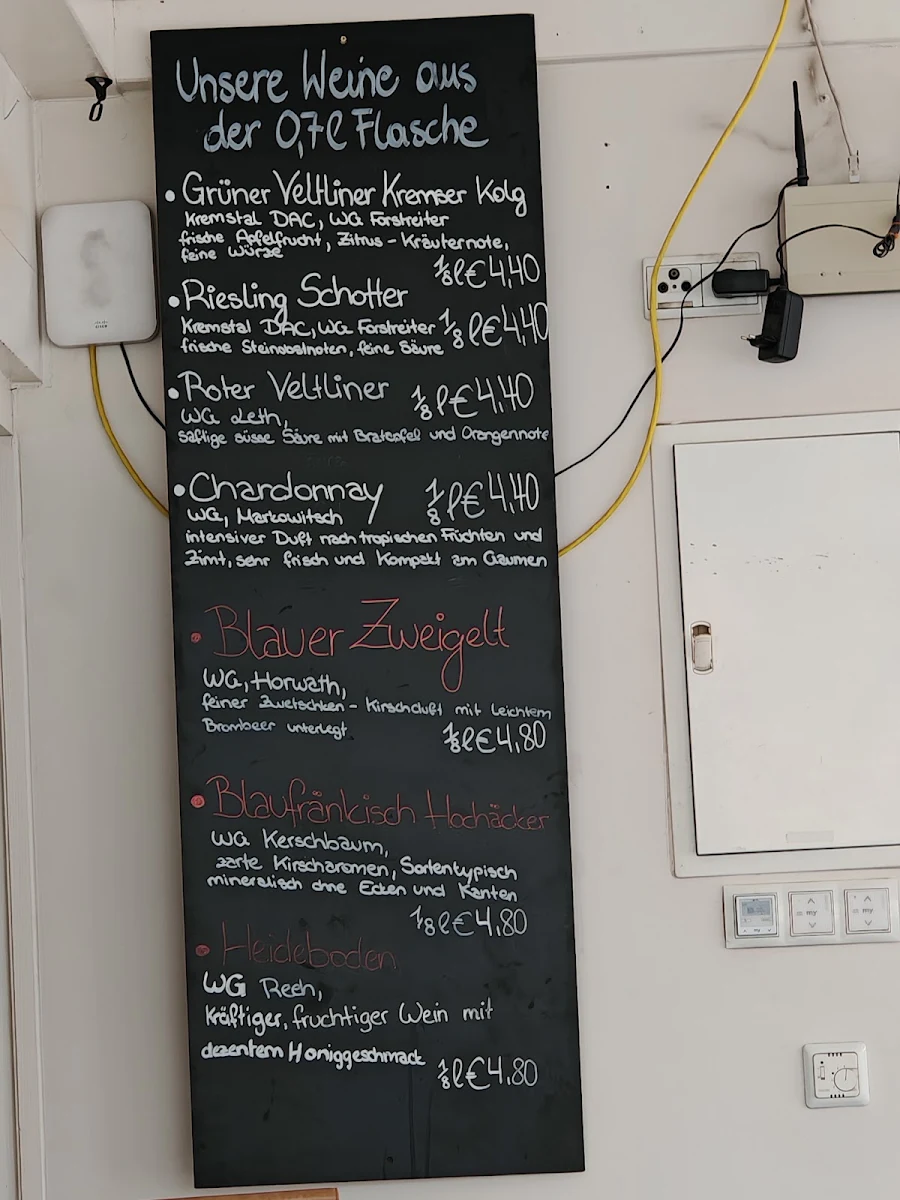 Unsere Weine aus
der 0,7l Flasche
• Grüner Veltliner Kremser Kolg
Kremstal DAC, WG Forstreiter
frische Apfelfrucht, Zitrus - Kräuternote,
feine Würze
1/8 l € 4,40
• Riesling Schotter
Kremstal DAC, WG Forstreiter 1/8 l € 4,40
frische Steinobstnoten, feine Säure
• Roter Veltliner 1/8 l € 4,40
WG Leth,
saftige süsse Säure mit Bratapfel und Orangennote
• Chardonnay 1/8 l € 4,40
WG, Markowitsch
intensiver Duft nach tropischen Früchten und
Zimt, sehr frisch und Kompakt am Gaumen
• Blauer Zweigelt
WG, Horwath,
feiner Zwetschken - Kirschduft mit leichtem
Brombeer unterlegt
1/8 l € 4,80
• Blaufränkisch Hochäcker
WG Kerschbaum,
zarte Kirscharomen, Sortentypisch
mineralisch ohne Ecken und Kanten
1/8 l € 4,80
• Heideboden
WG Reeh,
Kräftiger, fruchtiger Wein mit
dezentem Honiggeschmack
1/8 l € 4,80